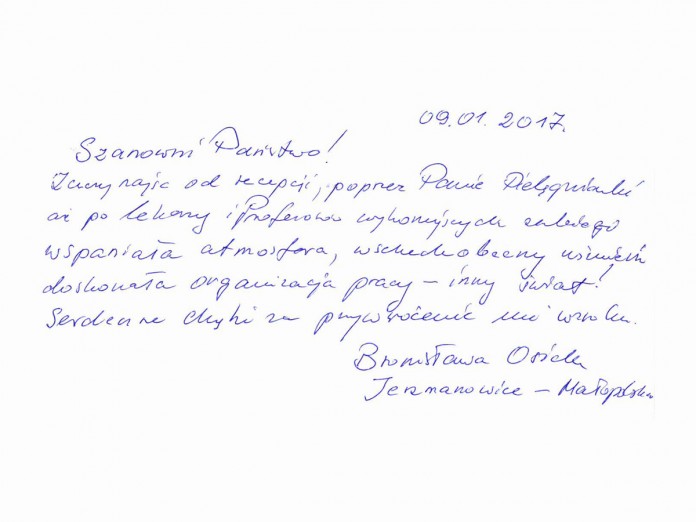 09.01.2017.
Szanowni Państwo!
Zaczynając od recepcji, poprzez Panie Pielęgniarki
aż po lekarzy i Profesorów wykonujących zabiegi
wspaniała atmosfera, wszechobecny uśmiech
doskonała organizacja pracy – inny świat!
Serdeczne dzięki za przywrócenie mi wzroku.
Bronisława
Jerzmanowice – Małopolska